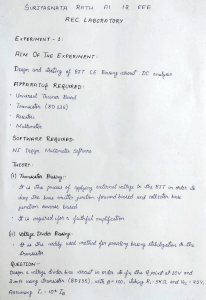 SURJYAGNATA RATH A1 12 EEE
AEC LABORATORY
EXPERIMENT - 1:
AIM OF THE EXPERIMENT:
Design and testing of BJT CE Biasing circuit DC analysis
APPARATUS REQUIRED:
- Universal Trainer Board
- Transistor (BD 135)
- Resistor
- Multimeter
SOFTWARE REQUIRED:
NI Multisim Software
THEORY:
(i) Transistor Biasing:-
- It is the process of applying external voltage to the BJT in order to
the base emitter junction forward biased and collector base
junction reverse biased
- It is required for a faithful amplification
(ii) Voltage Divider Biasing:-
- It is the widely used method for providing biasing stabilization to the
transistor
QUESTION:
Design a voltage divider bias circuit in order to fix the Q point at 10V and
2mA using transistor (BD 135), with β = 100, taking
Assuming